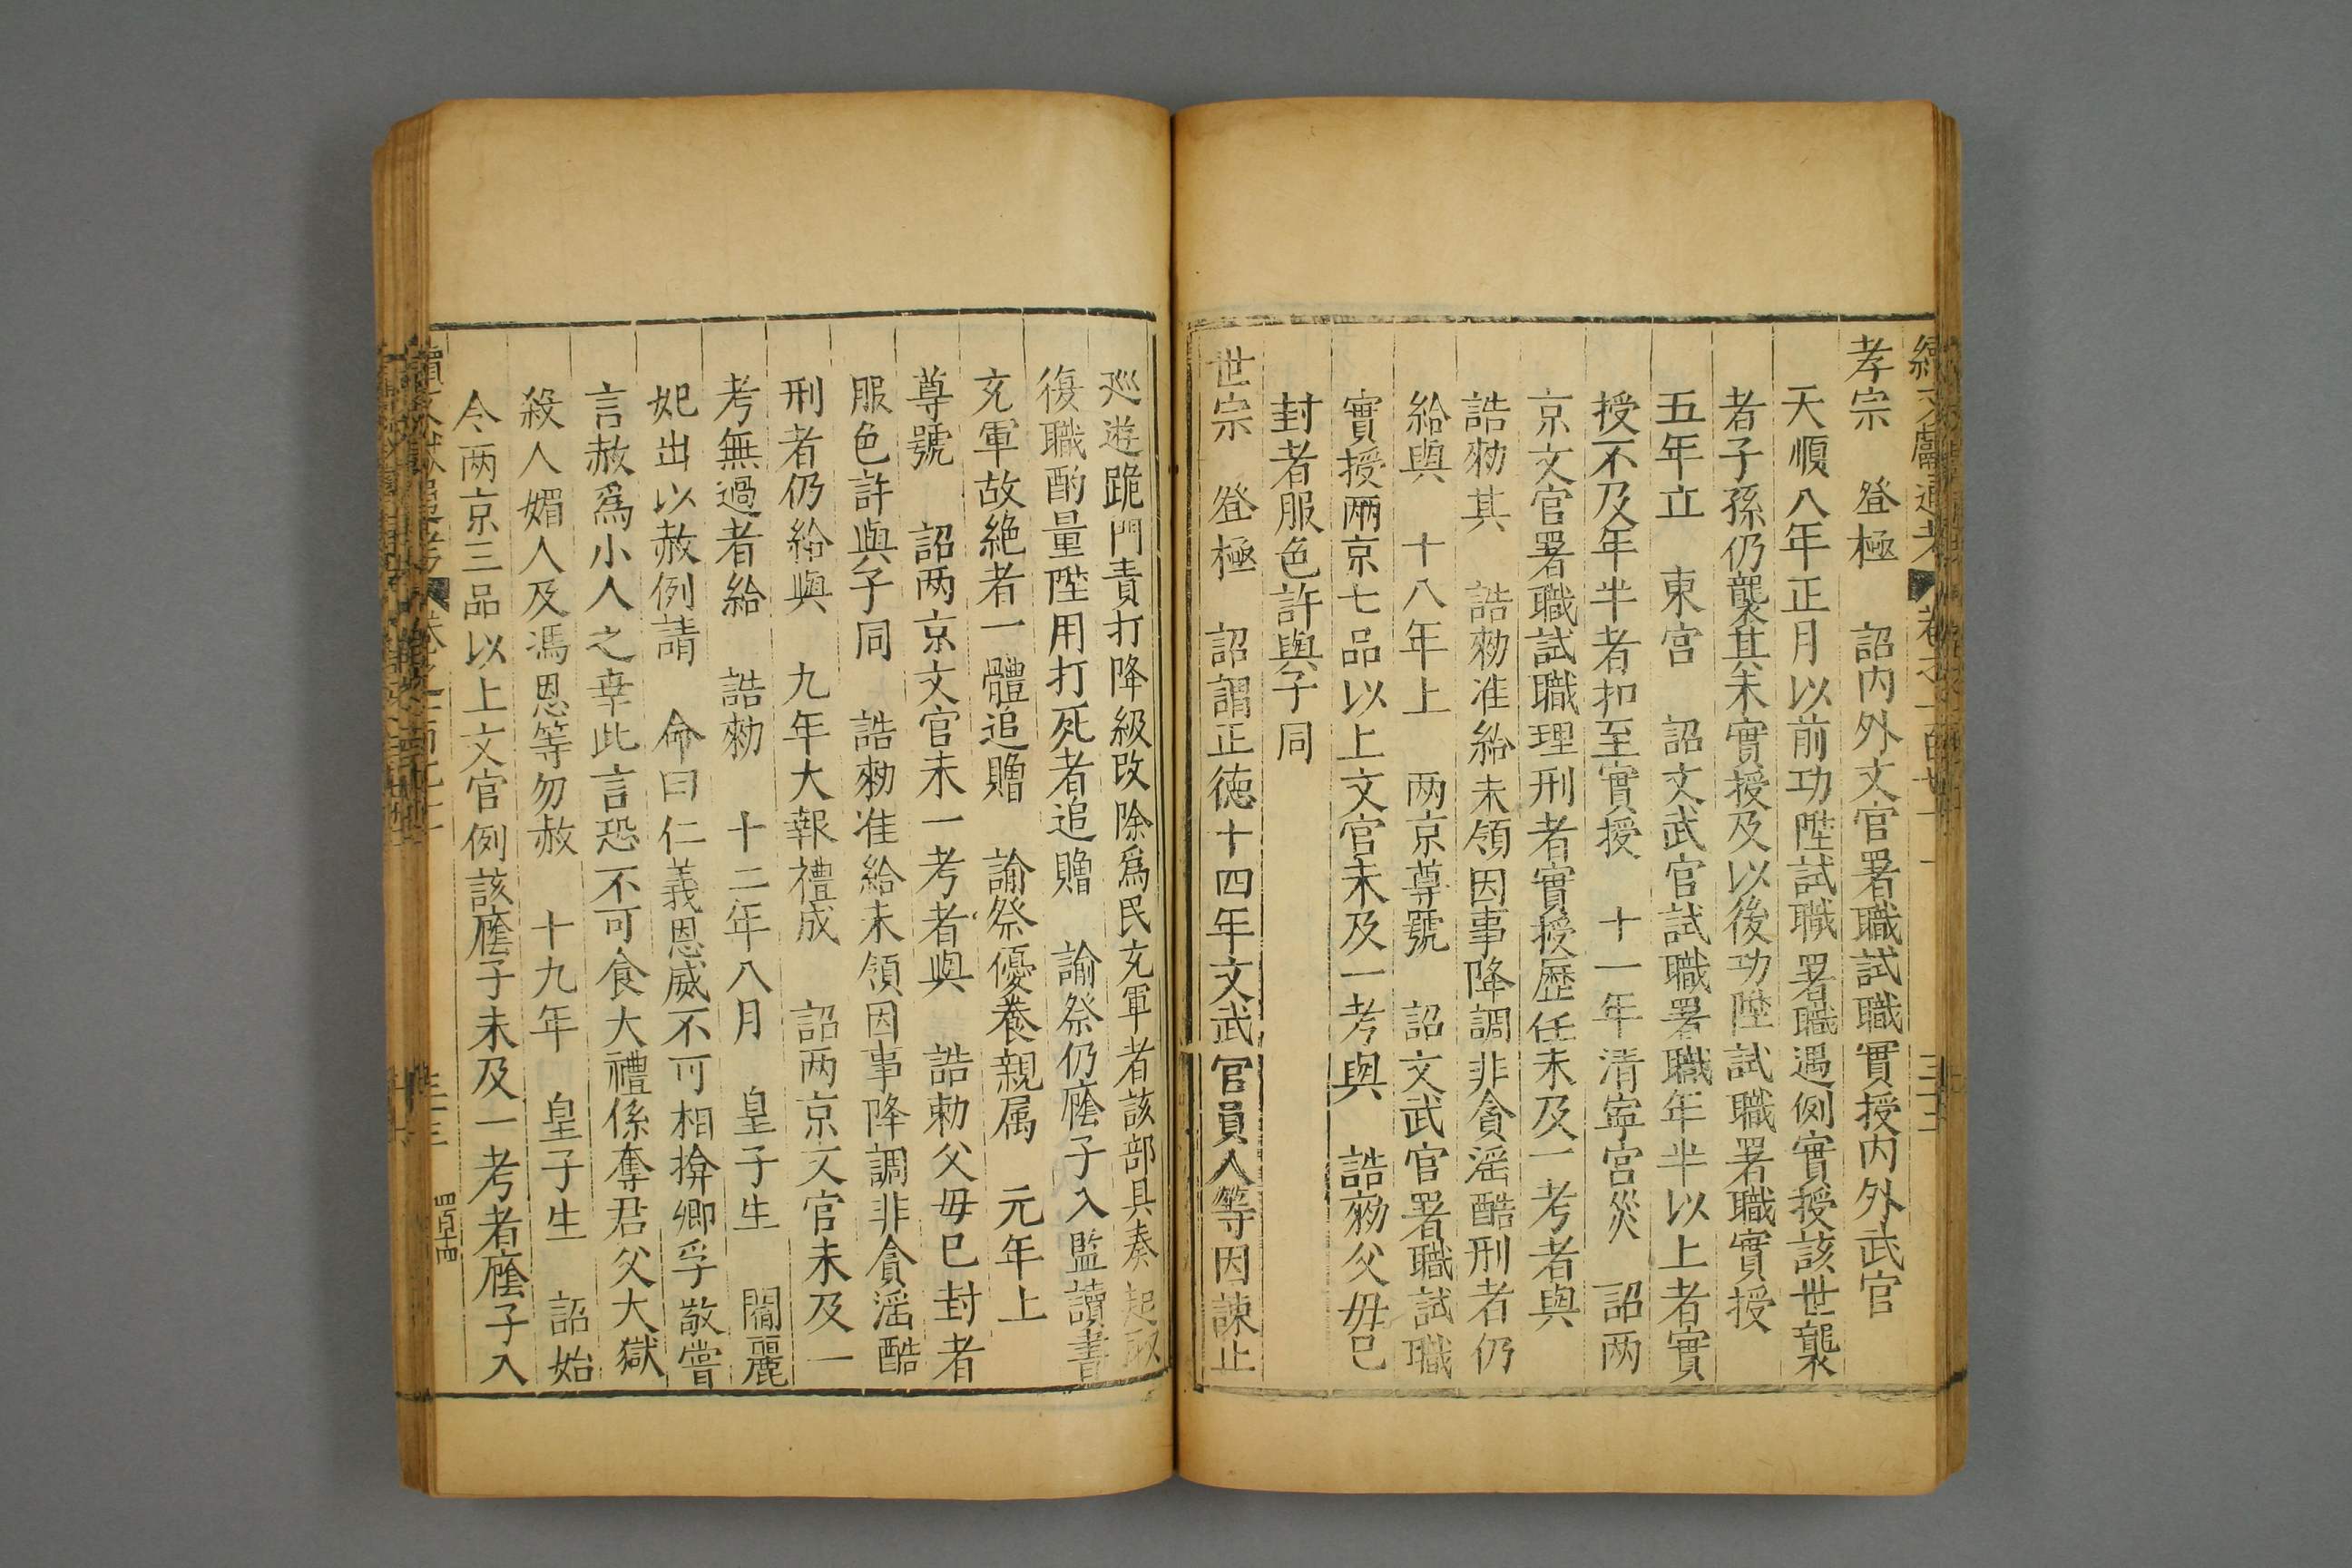 續文獻通考 卷之一百
孝宗 登極 詔内外文官署職試職實授内外武官
天順八年正月以前功陞試職署職遇例實授該世襲
者子孫仍襲其未實授及以後功陞試職署職實授
五年立 東宫 詔文武官試職署職年半以上者實
授不及年半者扣至實授 十一年清寧宫災 詔两
京文官署職試職理刑者實授歷任未及一考者與
誥勑其 誥勑准給未領因事降調非貪滛酷刑者仍
給與 十八年上 两京尊號 詔文武官署職試職
實授兩京七品以上文官未及一考與 誥勑父毋已
封者服色許與子同
世宗 登極 詔謂正德十四年文武官員人等因諫止
巡遊跪門責打降級改除爲民充軍者該部具奏起取
復職酌量陞用打死者追贈 諭祭仍廕子入監讀書
充軍故絶者一體追贈 諭祭優養親属 元年上
尊號 詔两京文官未一考者與 誥勅父毋已封者
服色許與子同 誥勑准給未領因事降調非貪滛酷
刑者仍給與 九年大報禮成 詔两京文官未及一
考無過者給 誥勑 十二年八月 皇子生 閻麗
妃出以赦例請 命曰仁義恩威不可相揜卿孚敬嘗
言赦爲小人之幸此言恐不可食大禮係奪君父大獄
殺人媚人及馮恩等勿赦 十九年 皇子生 詔始
令两京三品以上文官例該廕子未及一考者廕子入